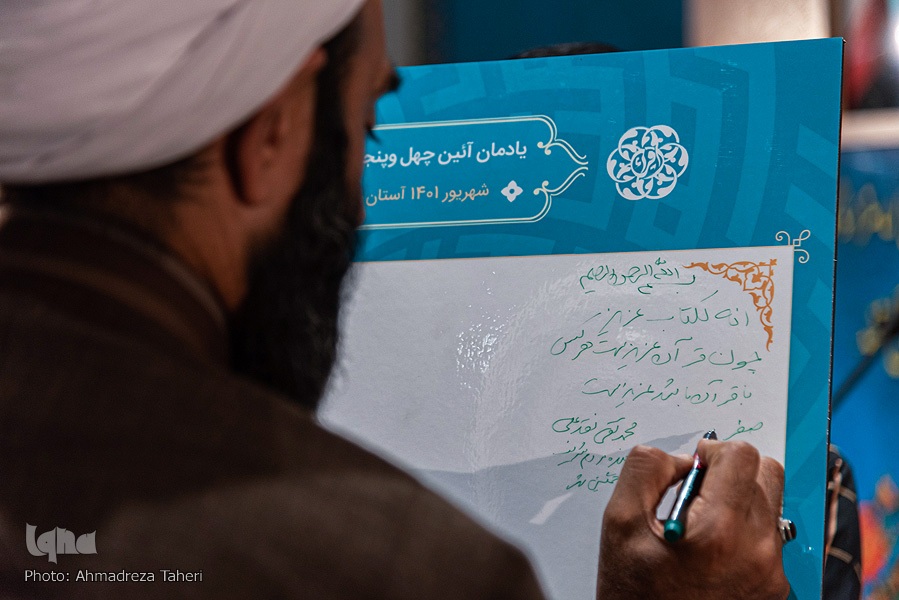 یادمان آئین چهل وپنج
شهریور ۱۴۰۱ آستان
بسم الله الرحمن الرحیم
انه لکتاب عزیز
چون قرآن عزیز است هرکس
با قرآن باشد عزیز است
محمدتقی نقدعلی
صفر
Iqna
Photo: Ahmadreza Taheri